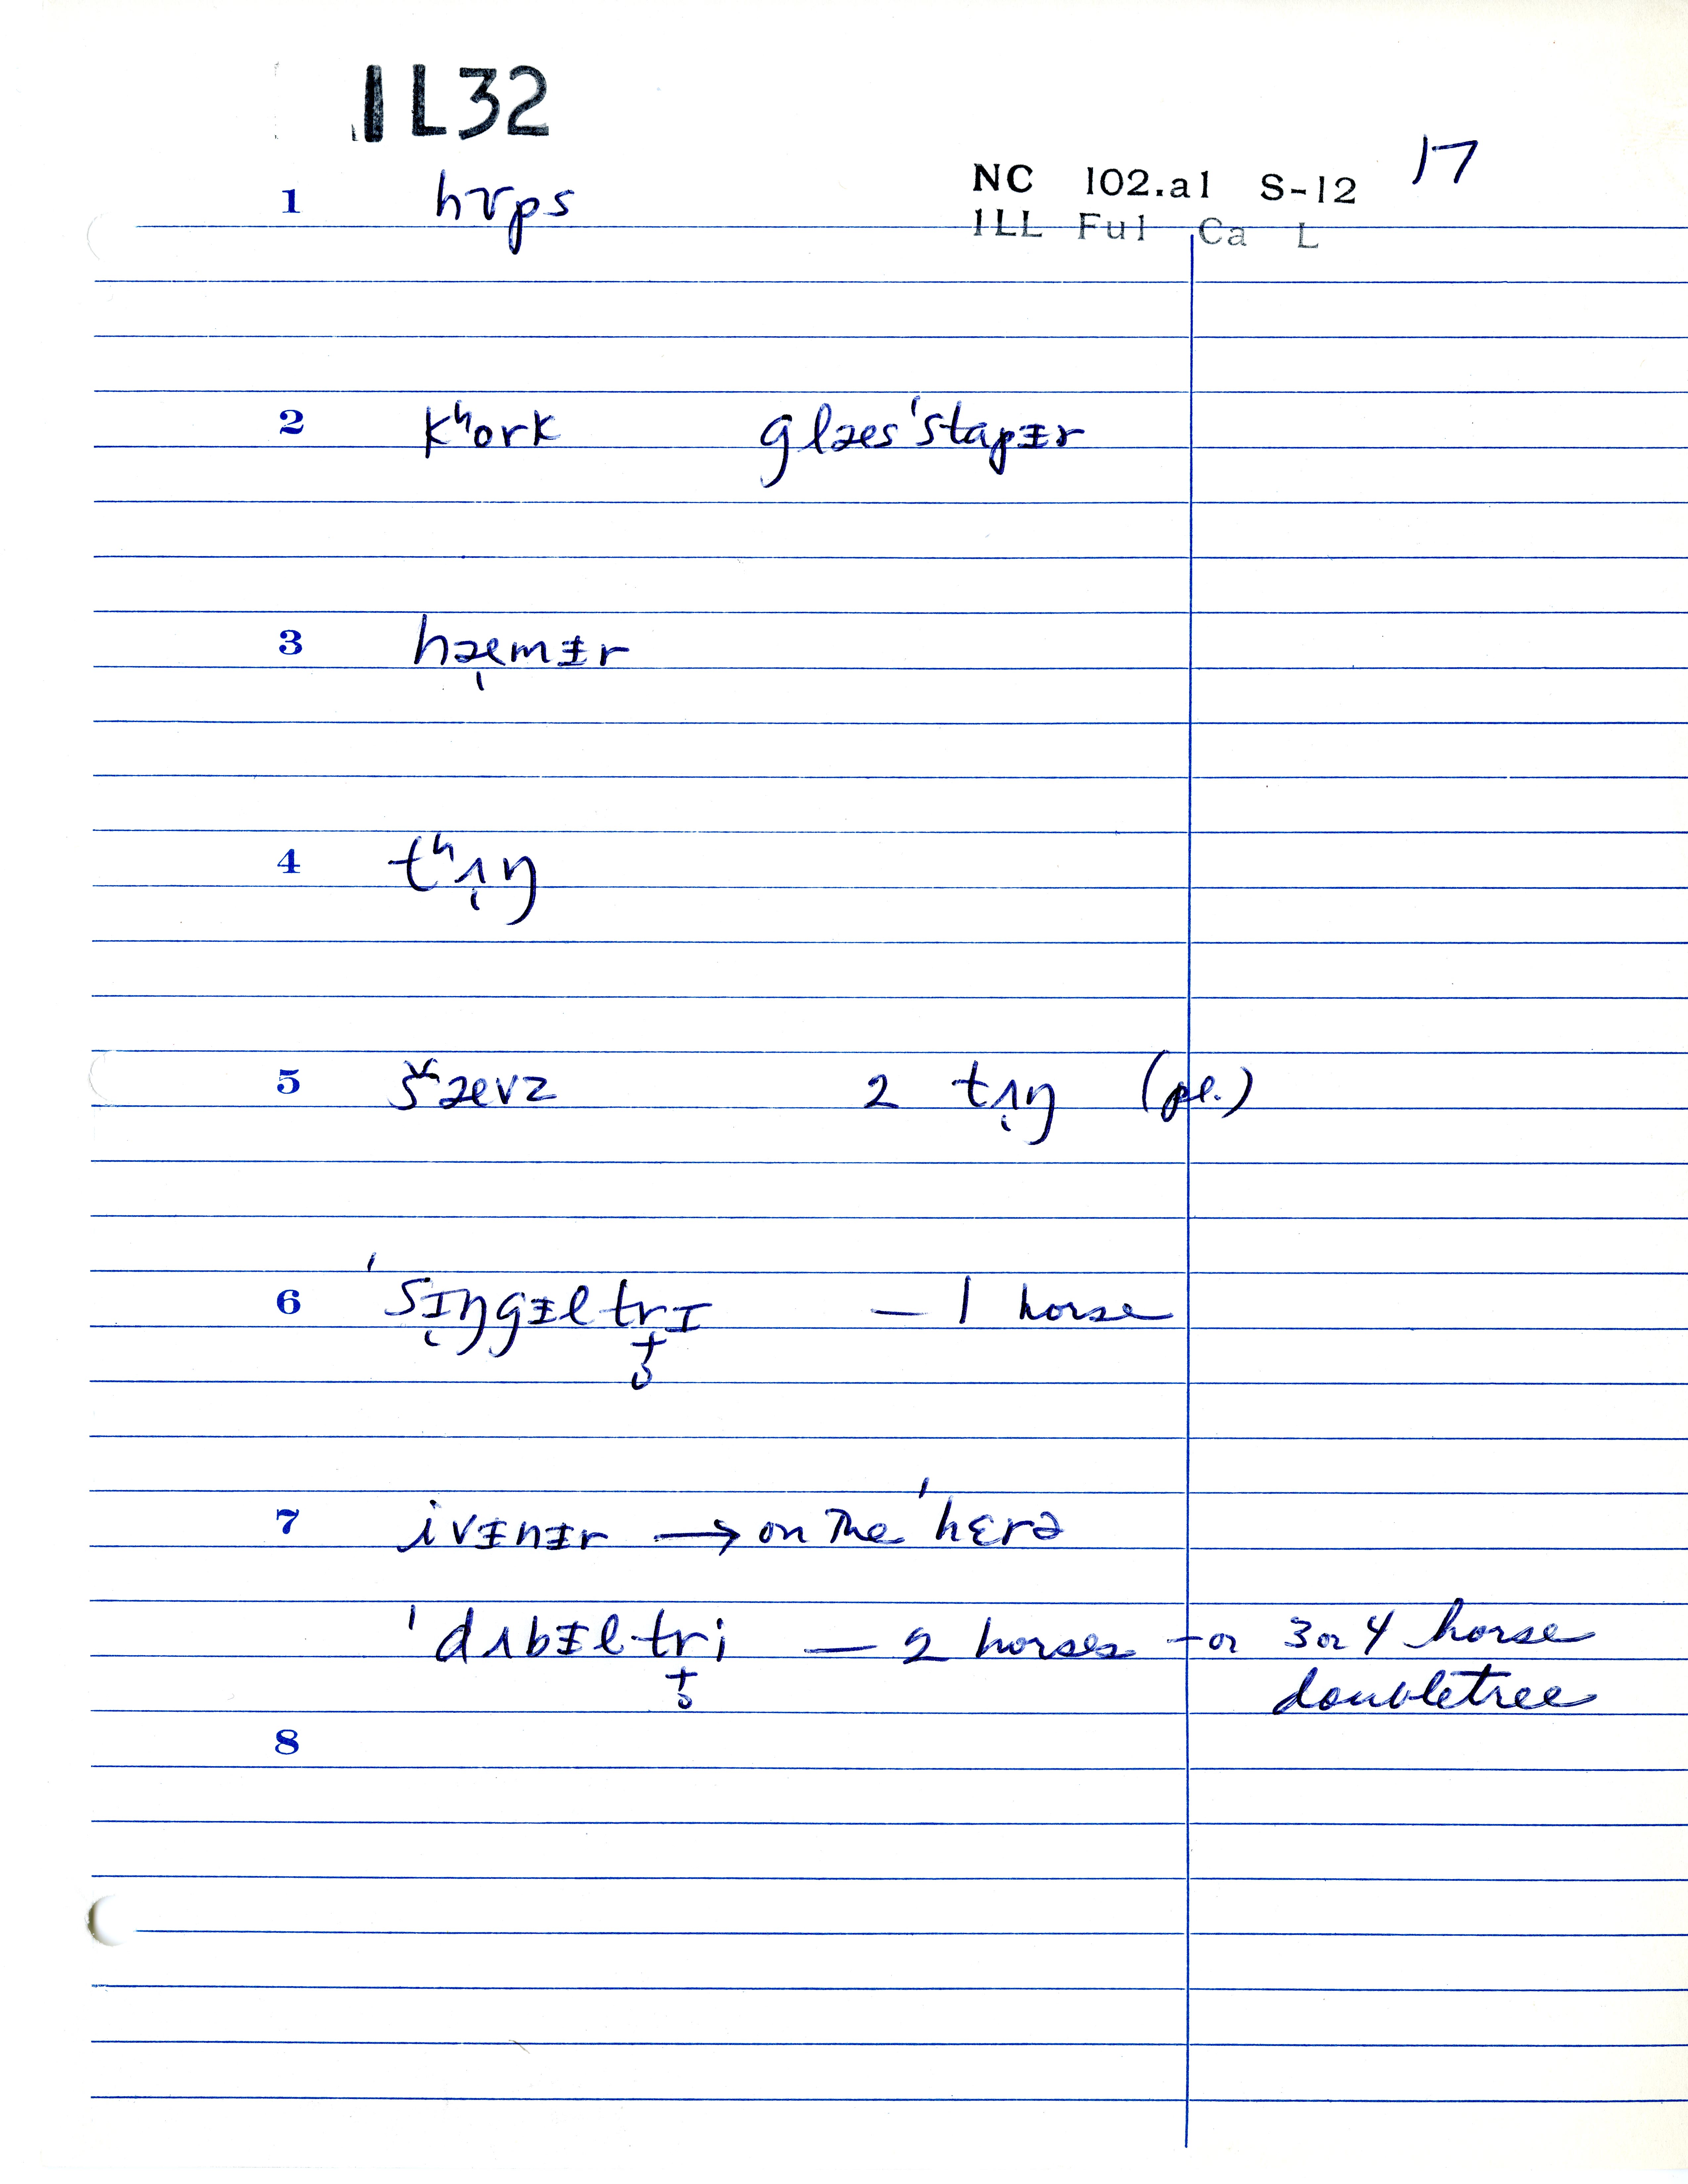 IL32
NC 102.a1 S-12 17
ILL Ful Ca L
1 hʊps
2 kʰork glæs'stapᵻr
3 hæ̨mᵻr
4 tʰʌ̨ŋ
5 šævz 2 tʌ̨ŋ (pl.)
6 'sɪ̨ŋgᵻltrɪ — 1 horse
7 ivᵻnᵻr → on the 'hɛrə
'dʌbᵻltri — 2 horses — or 3 or 4 horse
doubletree
8